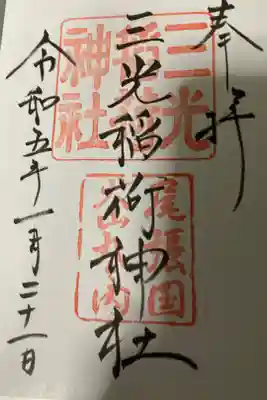 奉拝
三光稲荷神社
令和五年一月二十一日
三光
稲荷
神社
尾張国
犬山城内